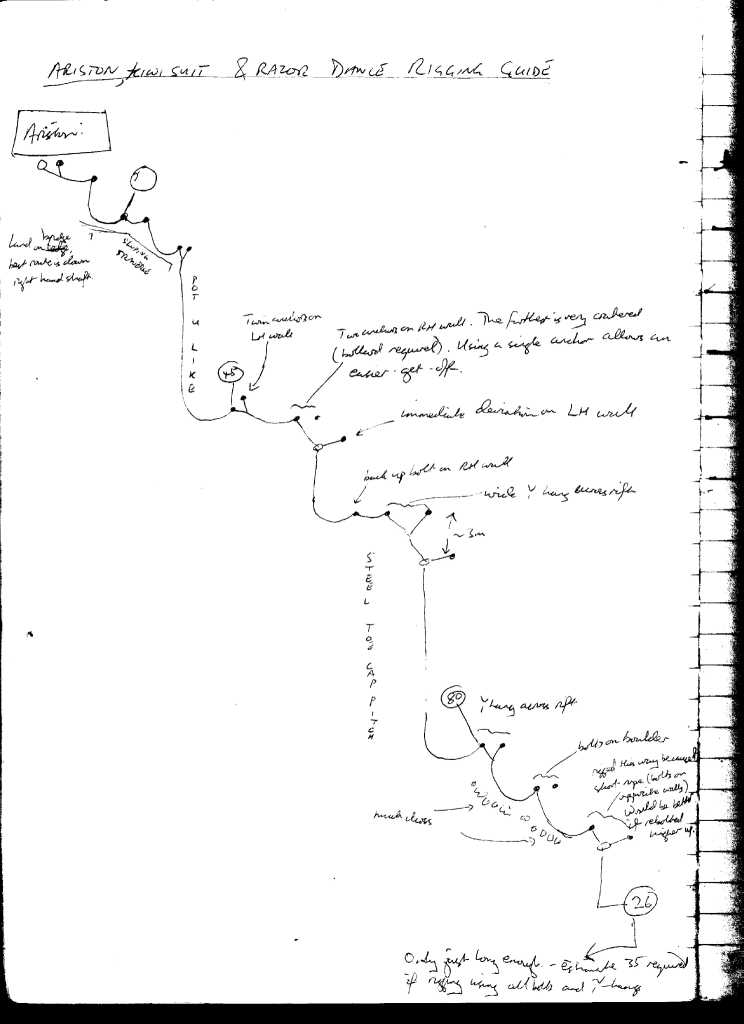 ARISTON, KIWI SUIT & RAZOR DANCE RIGGING GUIDE
Ariston.
Land on bridge,
best route is down
right hand shaft
POT U LIKE
45
Twin anchors on
LH wall
Twin anchors on RH wall. The further is very cratered
(bollard required). Using a single anchor allows an
easier get-off.
immediate deviation on LH wall
back up bolt on RH wall
wide Y hang across rift
~3m
STEEL TOE CAP PITCH
80
Y hang across rift
bolts on boulder
rigged this way because
short rope (bolts on
opposite walls)
would be better
if rebolted
higher up.
much loose
26
Only just long enough - Estimate 35 required
if rigging using all bolts and Y-hangs